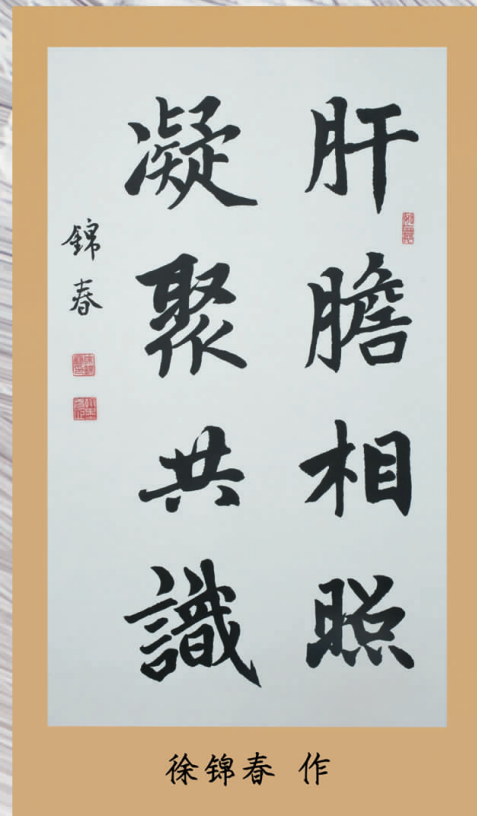 肝膽相照
凝聚共識
錦春
徐锦春 作